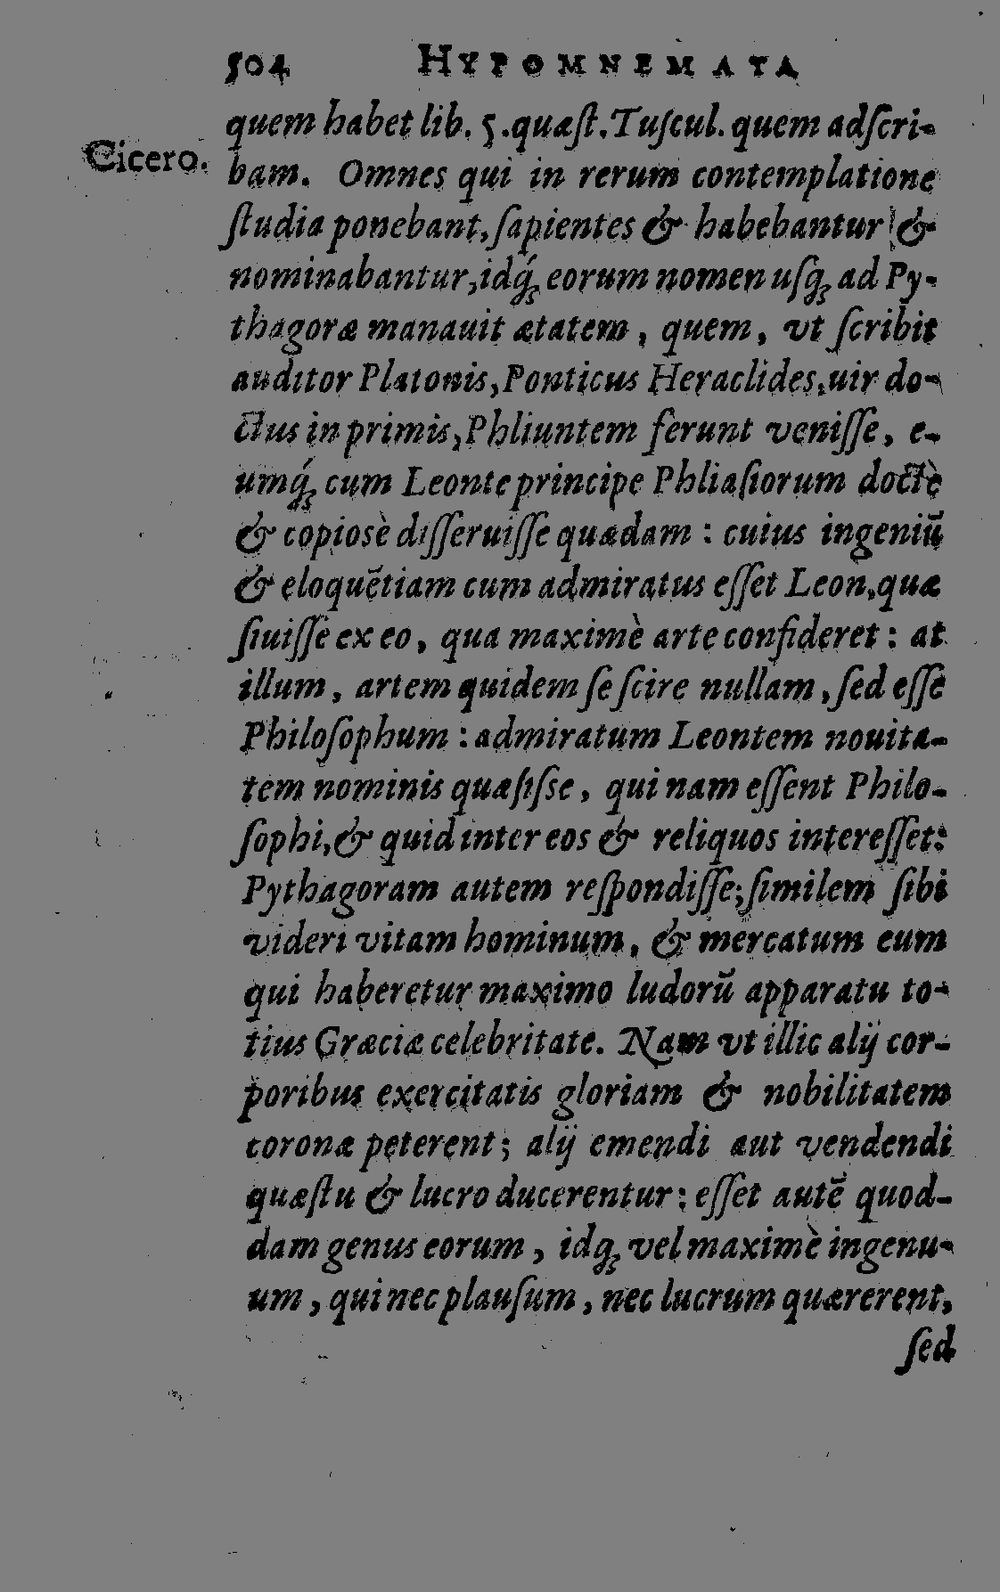 504 HYPOMNEMATA
quem habet lib. 5. quæſt. Tuſcul. quem adſcri-
Cicero.
bam. Omnes qui in rerum contemplatione
ſtudia ponebant, ſapientes & habebantur &
nominabantur, idq́ꝫ eorum nomen uſqꝫ ad Py-
thagoræ manauit ætatem, quem, vt ſcribit
auditor Platonis, Ponticus Heraclides, uir do-
ctus in primis, Phliuntem ferunt veniſſe, e-
umq́ꝫ cum Leonte principe Phliaſiorum doctè
& copiosè diſſeruiſſe quædam : cuius ingeniū
& eloquētiam cum admiratus eſſet Leon, quæ
ſiuiſſe ex eo, qua maximè arte confideret : at
illum, artem quidem ſe ſcire nullam, ſed eſſe
Philoſophum : admiratum Leontem nouita-
tem nominis quæſiſse, qui nam eſſent Philo-
ſophi, & quid inter eos & reliquos intereſſet:
Pythagoram autem reſpondiſſe; ſimilem ſibi
videri vitam hominum, & mercatum eum
qui haberetur maximo ludorū apparatu to-
tius Græciæ celebritate. Nam vt illic alij cor-
poribus exercitatis gloriam & nobilitatem
coronæ peterent; alij emendi aut vendendi
quæſtu & lucro ducerentur : eſſet autē quod-
dam genus eorum, idqꝫ vel maximè ingenu-
um, qui nec plauſum, nec lucrum quærerent,
ſed